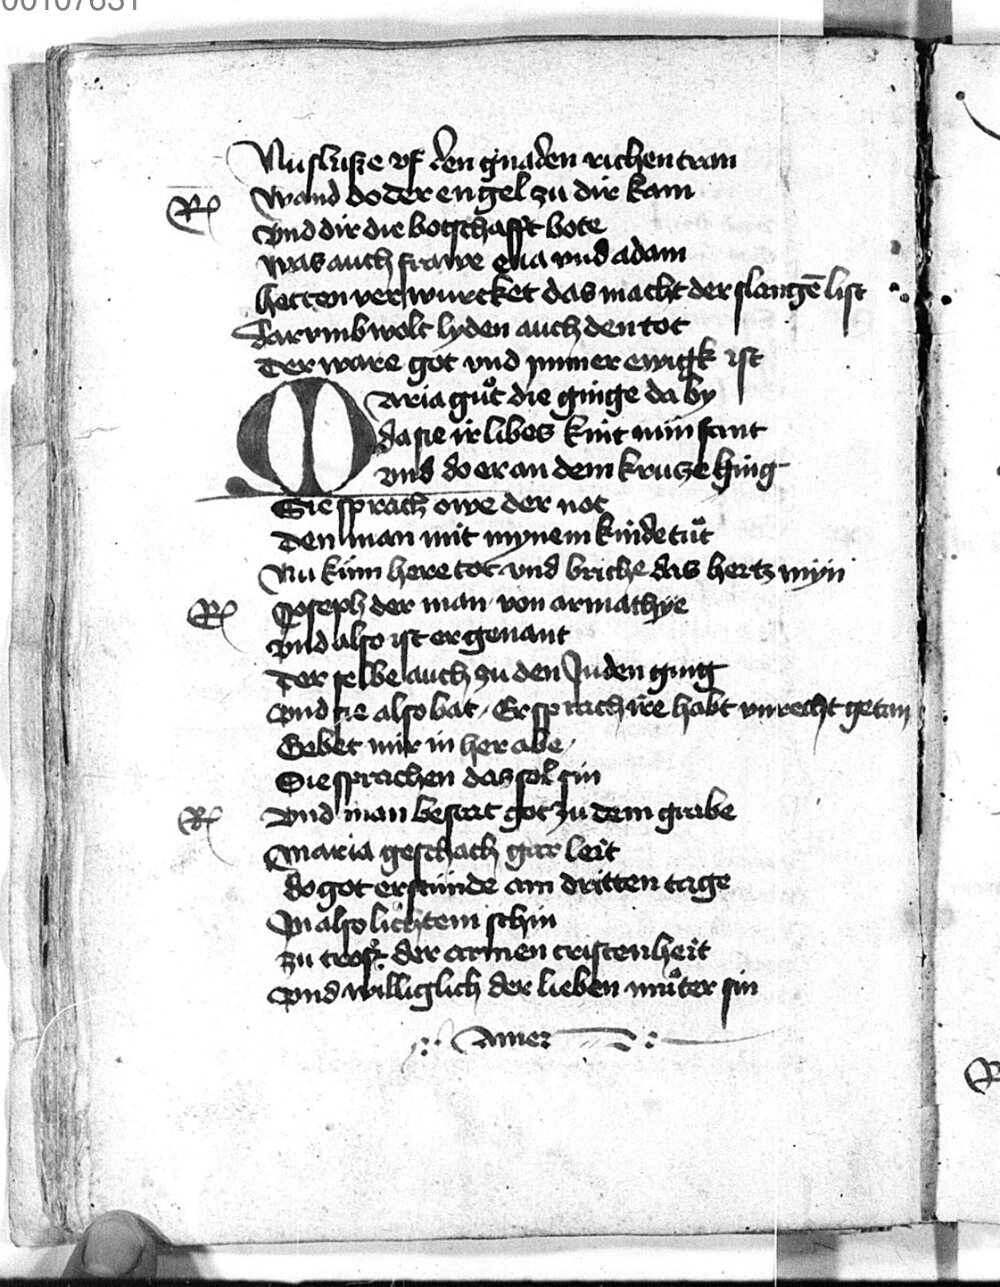 00107631
Nu slusze vf den gnaden richen tran
Rͤ Wand do der engel zu dir kam
vnd dir die botschafft bote
was auch frawe eua vnd adam
hetten verwurcket das macht der slangē list
Darvmb wolt lyden auch den tot
Der ware got vnd ymmer ewigk ist
Maria gůt die ginge da by
da sie ir libes kint
vnd do er an dem krusze hing
Sie sprach owe der not
Den man mit mynem kinde tůt
Nu kum here tot vnd briche das hertz myn
Joseph der man von armathye
vnd also ist er genant
Der selbe auch zu den Juden ging
vnd sie also bat / Er sprach ire habt vnrecht getan
Gebet mir in her abe /
Sie sprachen das sol sin
vnd man bestat got zu dem grabe
maria geschach gar leit
do got erstunde am dritten tage
In also lichtem schin
zu trost der armen cristenheit
vnd williglich der lieben můter sin
Amen